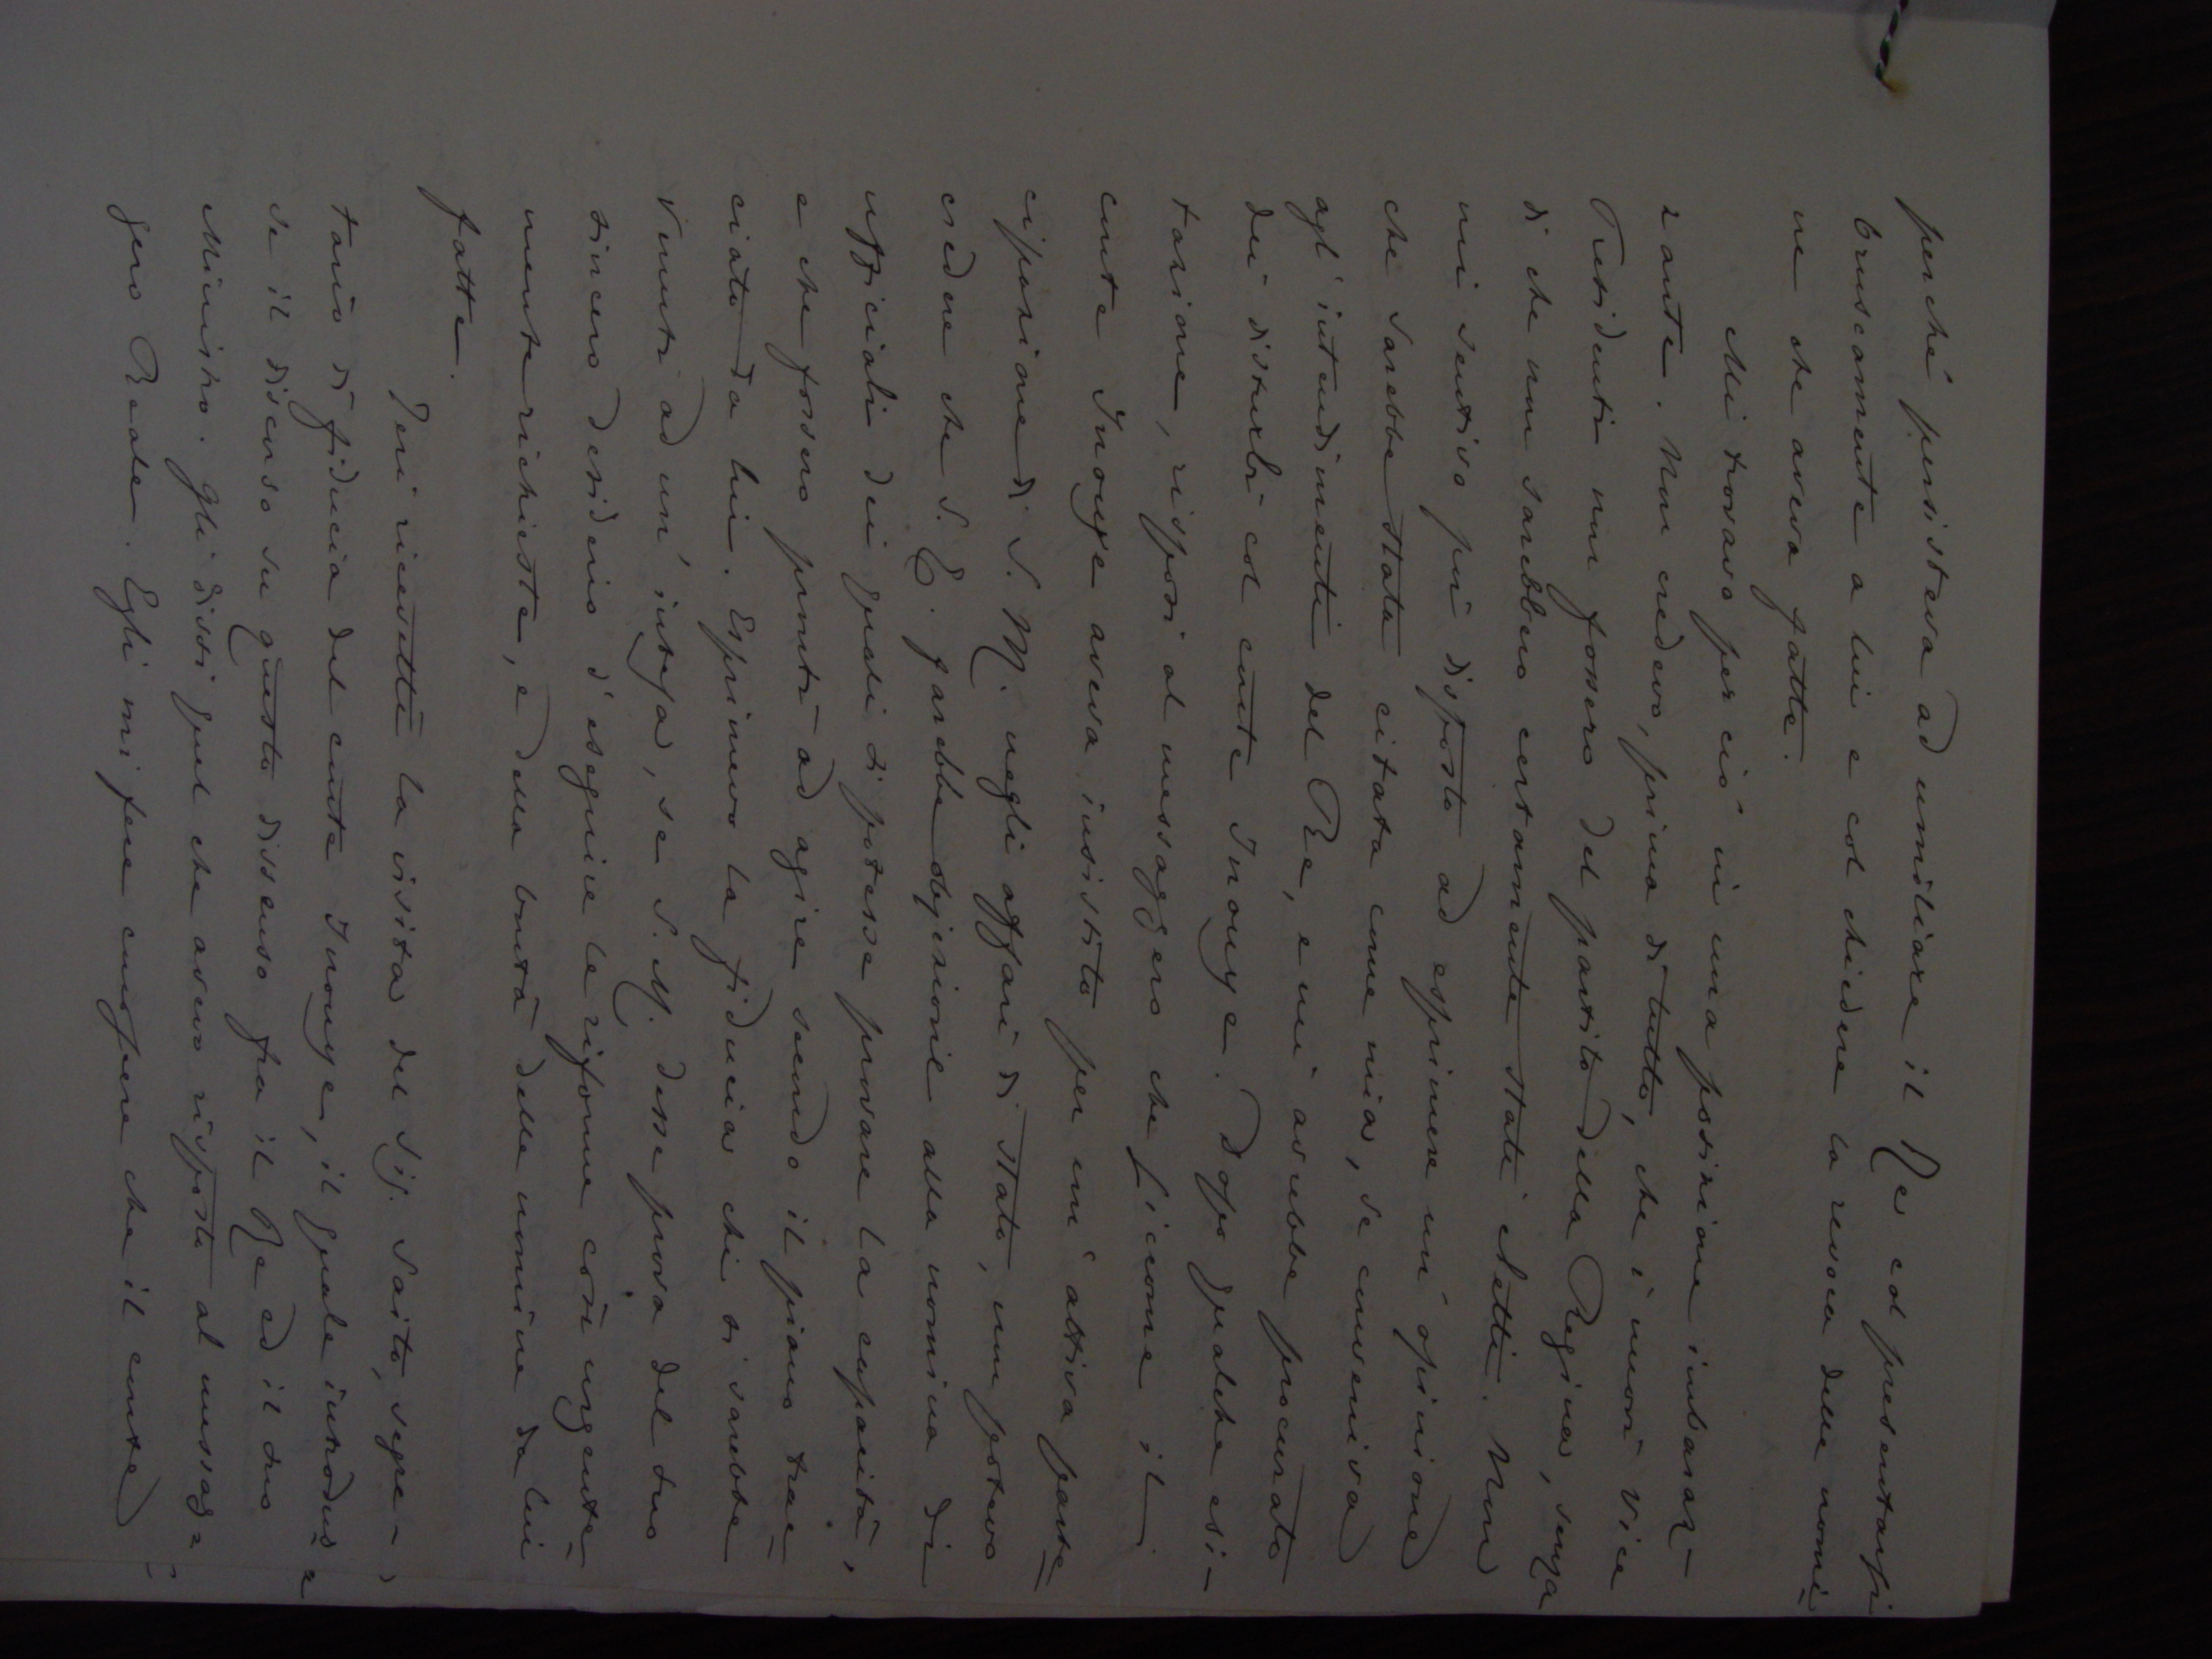 perché persisteva ad umiliare il Re col presentarsi
bruscamente a lui e col chiedere la revoca delle nomi=
ne che aveva fatte.
Mi trovavo per ciò in una posizione imbaraz-
zante. Non credevo, prima di tutto, che i nuovi Vice
Presidenti non fossero del partito della Regina, senza
di che non sarebbero certamente stati eletti. Non
mi sentivo più disposto ad esprimere un' opinione
che sarebbe stata citata come mia, se conveniva
agl' intendimenti del Re, e mi avrebbe procurato
dei disturbi col conte Inouye. Dopo qualche esi-
tazione, risposi al messaggero che siccome il
conte Inouye aveva insistito per un' attiva parte=
cipazione di S. M. negli affari di stato, non potevo
credere che S. E. farebbe objezioni alla nomina di
ufficiali dei quali si potesse provare la capacità,
e che fossero pronti ad agire secondo il piano trac=
ciato da lui. Esprimevo la fiducia che si sarebbe
venuti ad un' intesa, se S. M. desse prova del suo
sincero desiderio d'eseguire le riforme così urgente=
mente richieste, e della bontà delle nomine da lui
fatte.
Jeri ricevetti la visita del Sig. Saito, segre-
tario di fiducia del conte Inouye, il quale introdus=
se il discorso su questo dissenso fra il Re ed il suo
Ministro. Gli dissi quel che avevo risposto al messag=
gero Reale. Egli mi fece conoscere che il conte